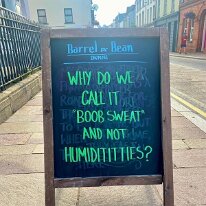 Barrel or Bean
WHY DO WE
CALL IT
"BOOB SWEAT"
AND NOT
HUMIDITITTIES?